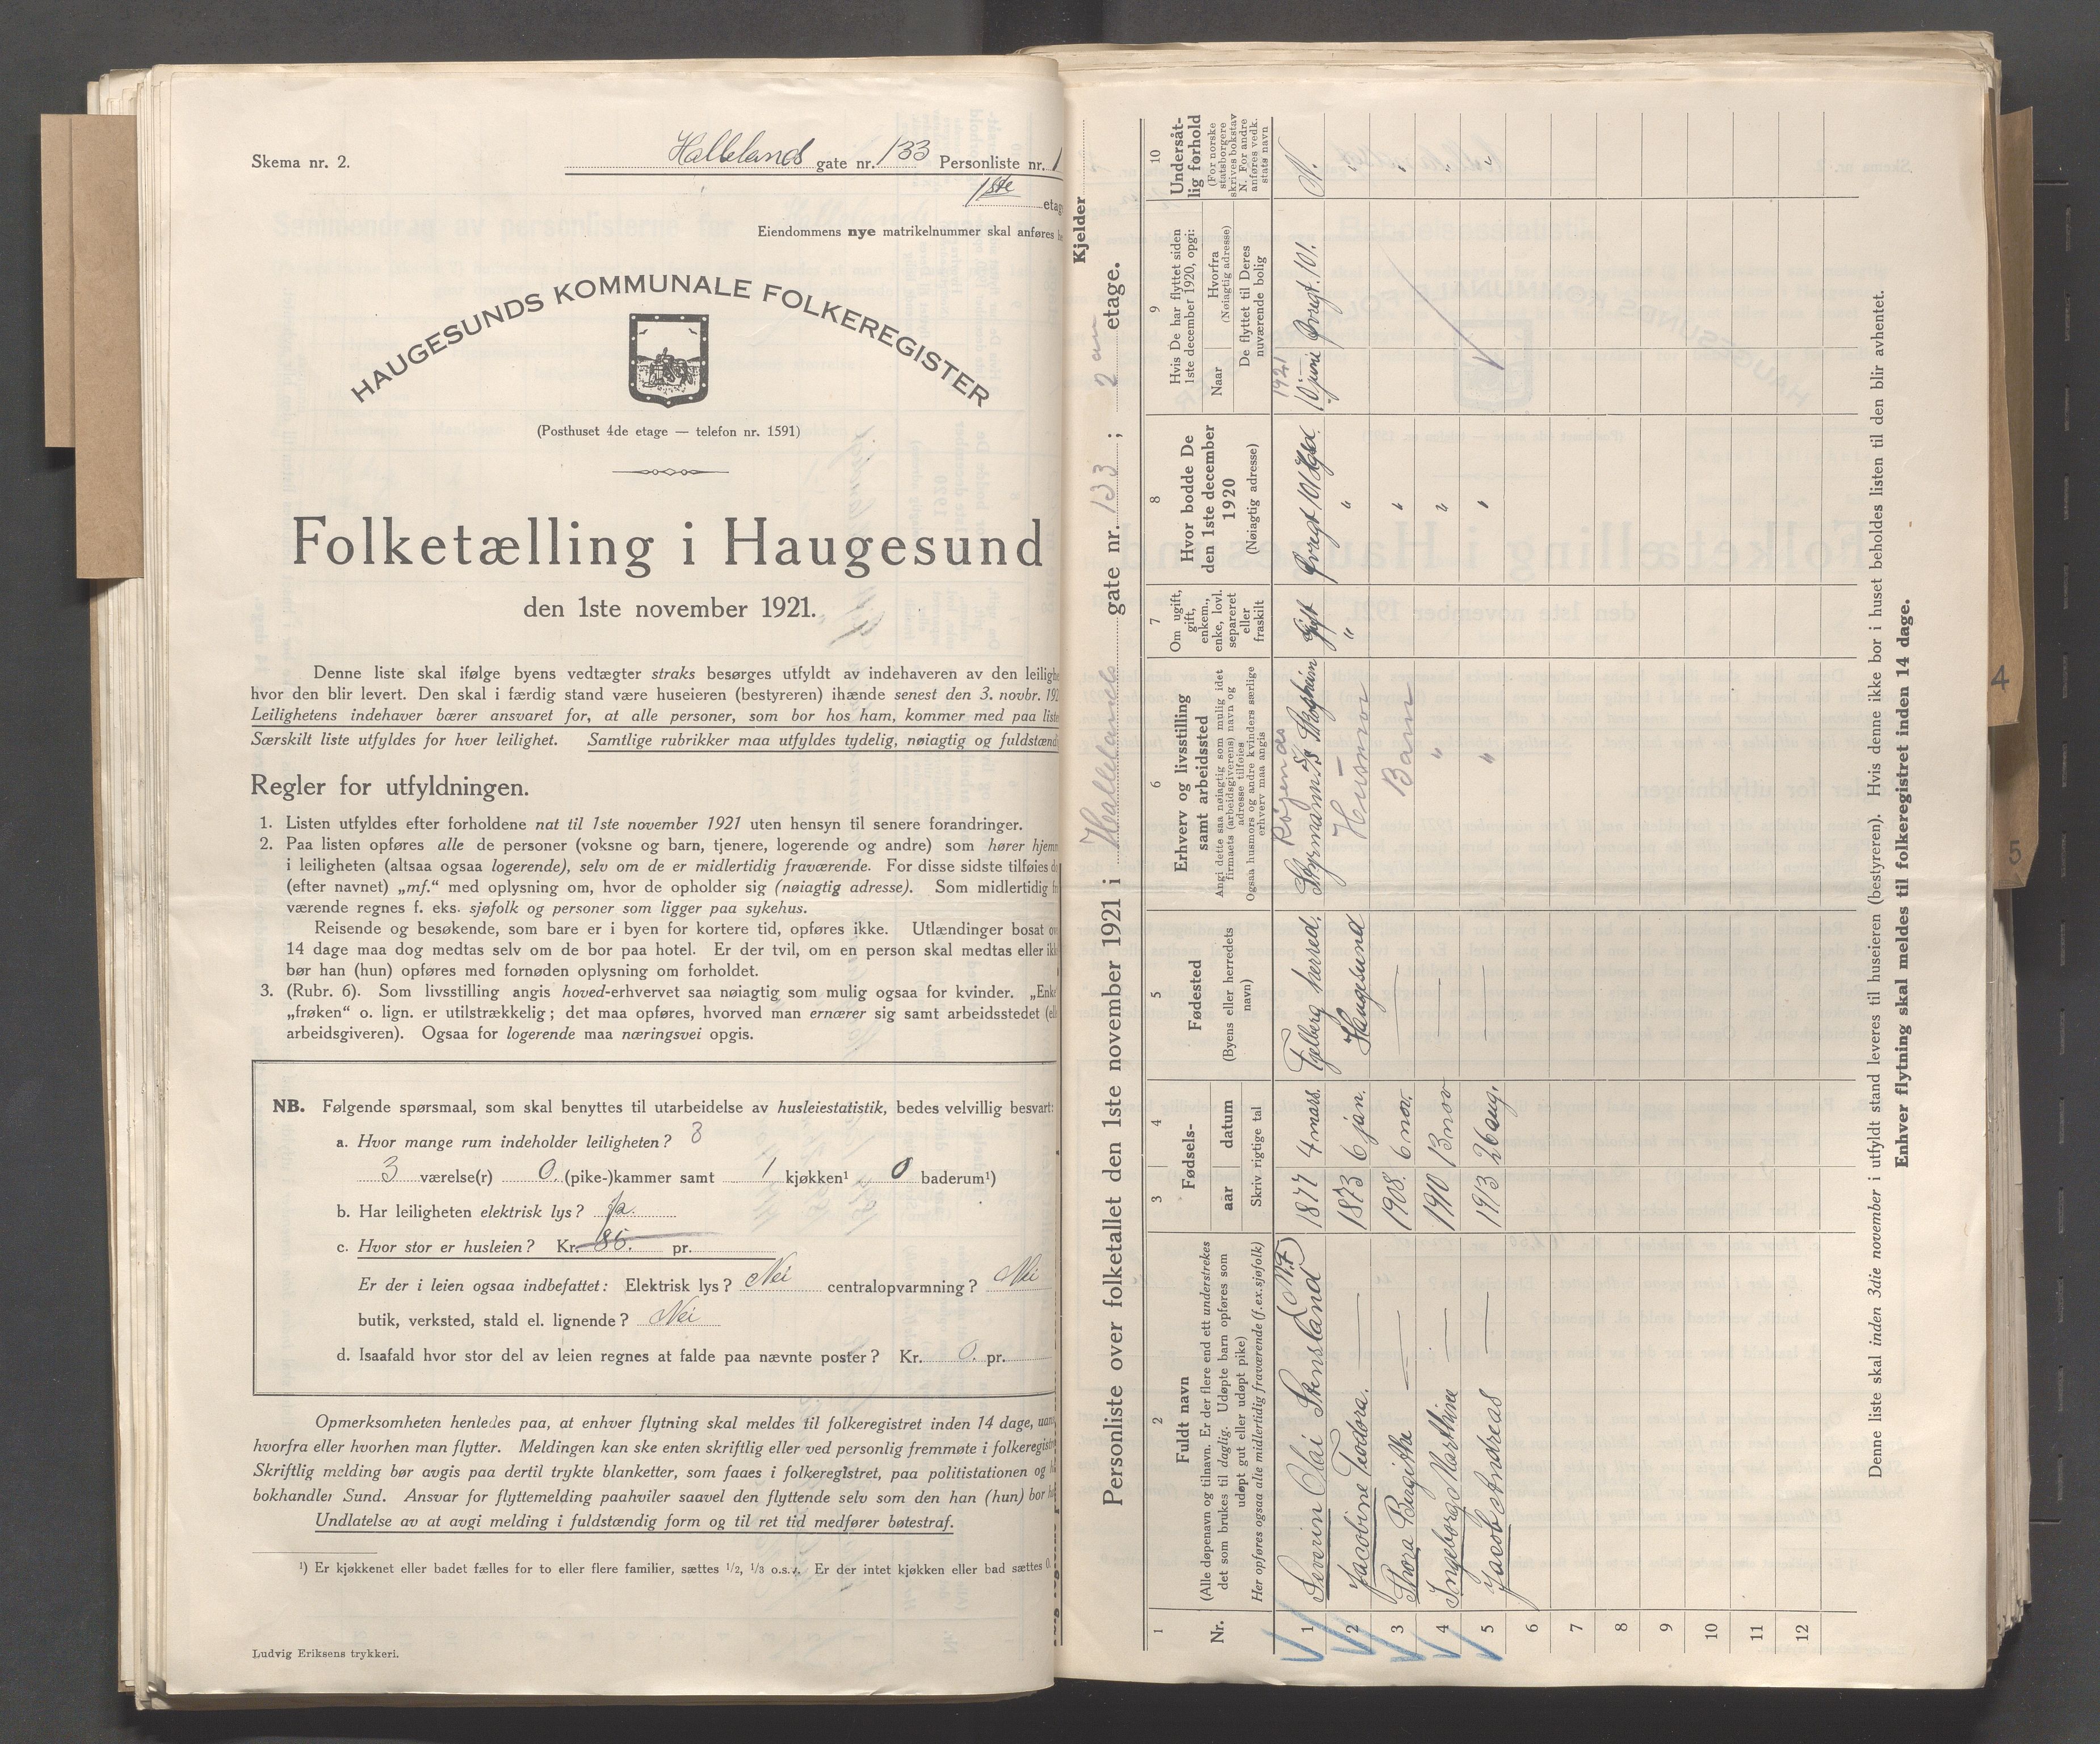 Skema nr. 2.
Hallelands gate nr. 133 Personliste nr. 1
1ste etag
Eiendommens nye matrikelnummer skal anføres he
HAUGESUNDS KOMMUNALE FOLKEREGISTER
(Posthuset 4de etage — telefon nr. 1591)
Folketælling i Haugesund
den 1ste november 1921.
Denne liste skal ifølge byens vedtægter straks besørges utfyldt av indehaveren av den leilighe
hvor den blir levert. Den skal i færdig stand være huseieren (bestyreren) ihænde senest den 3. novbr. 192
Leilighetens indehaver bærer ansvaret for, at alle personer, som bor hos ham, kommer med paa liste
Særskilt liste utfyldes for hver leilighet. Samtlige rubrikker maa utfyldes tydelig, nøiagtig og fuldstænd
Regler for utfyldningen.
1. Listen utfyldes efter forholdene nat til 1ste november 1921 uten hensyn til senere forandringer.
2. Paa listen opføres alle de personer (voksne og barn, tjenere, logerende og andre) som hører hjem
i leiligheten (altsaa ogsaa logerende), selv om de er midlertidig fraværende. For disse sidste tilføies d
(efter navnet) „mf.“ med oplysning om, hvor de opholder sig (nøiagtig adresse). Som midlertidig f
værende regnes f. eks. sjøfolk og personer som ligger paa sykehus.
Reisende og besøkende, som bare er i byen for kortere tid, opføres ikke. Utlændinger bosat o
14 dage maa dog medtas selv om de bor paa hotel. Er der tvil, om en person skal medtas eller ik
bør han (hun) opføres med fornøden oplysning om forholdet.
3. (Rubr. 6). Som livsstilling angis hoved-erhvervet saa nøiagtig som mulig ogsaa for kvinder. „Enke
„frøken“ o. lign. er utilstrækkelig; det maa opføres, hvorved man ernærer sig samt arbeidsstedet (el
arbeidsgiveren). Ogsaa for logerende maa næringsvei opgis.
NB. Følgende spørsmaal, som skal benyttes til utarbeidelse av husleiestatistik, bedes velvillig besvart:
a. Hvor mange rum indeholder leiligheten? 3
3 værelse(r) 0. (pike-)kammer samt 1 kjøkken¹ 0 baderum¹)
b. Har leiligheten elektrisk lys? Ja.
c. Hvor stor er husleien? Kr. 86. pr.
Er der i leien ogsaa indbefattet: Elektrisk lys? Nei centralopvarmning? Nei
butik, verksted, stald el. lignende? Nei
d. Isaafald hvor stor del av leien regnes at falde paa nævnte poster? Kr. 0. pr.
Opmerksomheten henledes paa, at enhver flytning skal meldes til folkeregistret inden 14 dage, uan
hvorfra eller hvorhen man flytter. Meldingen kan ske enten skriftlig eller ved personlig fremmøte i folkeregistr
Skriftlig melding bør avgis paa dertil trykte blanketter, som faaes i folkeregistret, paa politistationen og h
bokhandler Sund. Ansvar for flyttemelding paahviler saavel den flyttende selv som den han (hun) bor h
Undlatelse av at avgi melding i fuldstændig form og til ret tid medfører bøtestraf.
¹) Er kjøkkenet eller badet fælles for to eller flere familier, sættes 1/2, 1/3 o.s.v. Er der intet kjøkken eller bad sættes 0.
Ludvig Eriksens trykkeri.
Kjelder
Personliste over folketallet den 1ste november 1921 i Hallelands gate nr. 133 ; 2 etage.
1 2 3 4 5 6 7 8 9 10
Nr.
Fuldt navn
(Alle døpenavn og tilnavn. Er der flere end ett understrekes
det som brukes til daglig. Udøpte barn opføres som
udøpt gut eller udøpt pike)
Her opføres ogsaa alle midlertidig fraværende (f.ex. sjøfolk)
Fødsels-
aar datum
Skriv rigtige tal
Fødested
(Byens eller herredets
navn)
Erhverv og livsstilling
samt arbeidssted
Angi dette saa nøiagtig som mulig idet
firmaets (arbeidsgiverens) navn og
adresse tilføies
Ogsaa husmors og andre kvinders særlige
erhverv maa angis
Om ugift,
gift,
enkem.,
enke, lovl.
separeret
eller
fraskilt
Hvor bodde De
den 1ste december
1920
(Nøiagtig adresse)
Hvis De har flyttet siden
1ste december 1920, opgi:
Naar
Hvorfra
(Nøiagtig adresse)
De flyttet til Deres
nuværende bolig
Undersåt-
lig forhold
(For norske
statsborgere
skrives bokstav
N. For andre
anføres vedk.
stats navn
1 Severin Olai Stensland (M.F) 1877 4 mars. Fjelberg herred. Styrmann Gift 1921 10 juni 101. N.
2 Jacobine Teodora. — 1873 6 jan. Haugesund Husmor " " "
3 Thora Bergitha — 1908. 6 nov. — Barn " "
4 Ingeborg Marthine — 1910 13 nov — " " "
5 Jacob Andreas — 1913 26 aug. — " " "
6
7
8
9
10
11
12
Denne liste skal inden 3die november i utfyldt stand leveres til huseieren (bestyreren). Hvis denne ikke bor i huset beholdes listen til den blir avhentet.
Enhver flytning skal meldes til folkeregistret inden 14 dage.
4
5